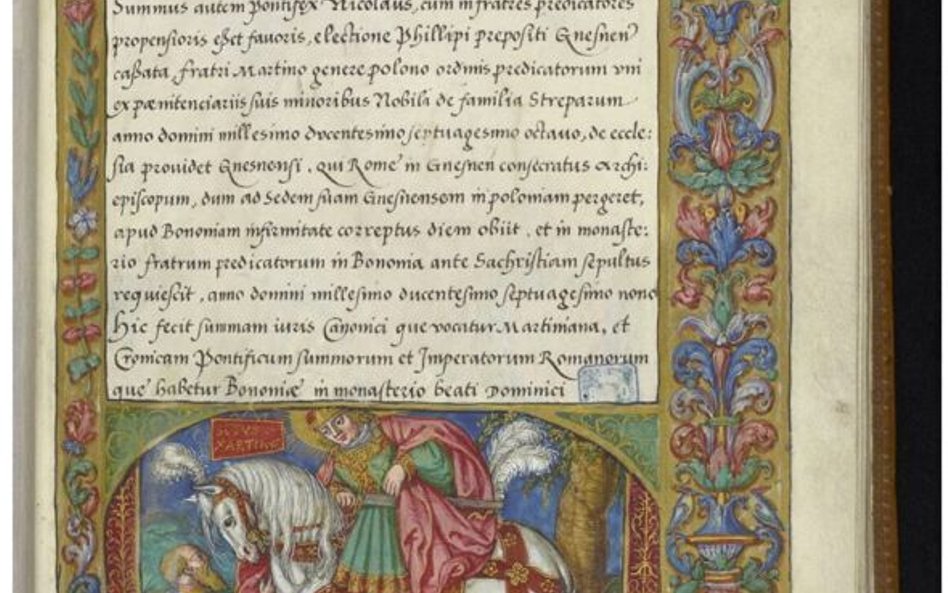 Summus autem Pontifex Nicolaus, cum in fratres predicatores
propensioris eßet favoris, electione Phillipi prepositi Gnesnen
caßata, fratri Martino genere polono ordinis predicatorum vni
ex pænitenciariis suis minoribus Nobila de familia Streparum
anno domini millesimo ducentesimo septuagesimo octauo, de eccle:
sia prouidet Gnesnensi, qui Rome in Gnesnen consecratus Archi:
episcopum, dum ad Sedem suam Gnesnensem in poloniam pergeret,
apud Bononiam infirmitate correptus diem obiit, et in monaste:
rio fratrum predicatorum in Bononia ante Sachristiam sepultus
requiescit, anno domini millesimo ducentesimo septuagesimo nono
Hic fecit summam iuris Canonici que vocatur Martiniana, et
Cronicam Pontificum summorum et Imperatorum Romanorum
que habetur Bononiæ in monasterio beati Dominici